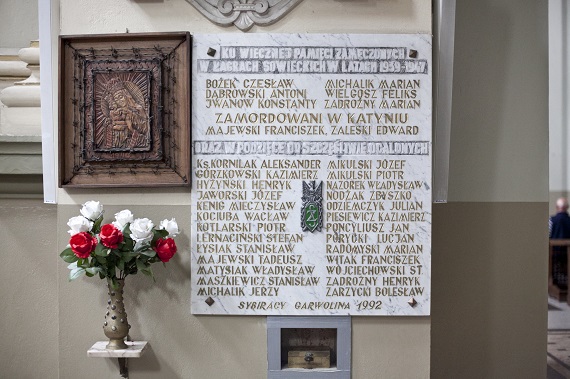 KU WIECZNEJ PAMIĘCI ZAMĘCZONYCH
W ŁAGRACH SOWIECKICH W LATACH 1939-1947
BOŻEK CZESŁAW MICHALIK MARIAN
DĄBROWSKI ANTONI WIELGOSZ FELIKS
IWANOW KONSTANTY ZADROŻNY MARIAN
ZAMORDOWANI W KATYNIU
MAJEWSKI FRANCISZEK, ZALESKI EDWARD
ORAZ W PODZIĘCE OD SZCZĘŚLIWIE OCALONYCH
KS. KORNILAK ALEKSANDER MIKULSKI JÓZEF
GÓRZKOWSKI KAZIMIERZ MIKULSKI PIOTR
HYŻYŃSKI HENRYK MAZOREK WŁADYSŁAW
JAWORSKI JÓZEF NODZAK ZBYSZKO
KENIG MIECZYSŁAW ODZIEMCZYK JULIAN
KOCIUBA WACŁAW PIESIEWICZ KAZIMIERZ
KOTLARSKI PIOTR PONCYLIUSZ JAN
LERNACIŃSKI STEFAN PORYCKI LUCJAN
ŁYSIAK STANISŁAW RADOMYSKI MARIAN
MAJEWSKI TADEUSZ WITAK FRANCISZEK
MATYSIAK WŁADYSŁAW WOJCIECHOWSKI ST
MASZKIEWICZ STANISŁAW ZADROŻNY HENRYK
MICHALIK JERZY ZARZYCKI BOLESŁAW
SYBIRACY GARWOLINA 1992